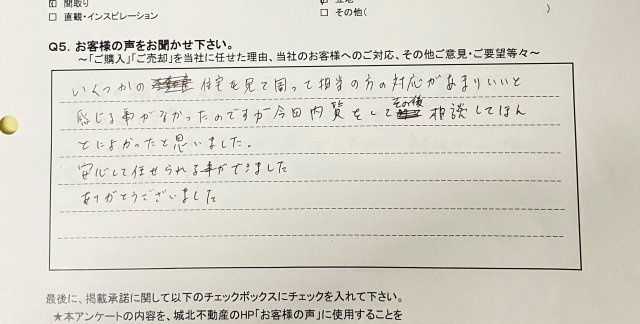 間取り
□ 直観・インスピレーション
□ その他(　　　)
Q5. お客様の声をお聞かせ下さい。
～「ご購入」「ご売却」を当社に任せた理由、当社のお客様へのご対応、その他ご意見・ご要望等々～
いくつかの住宅を見て回って担当の方の対応があまりいいと
感じる事がなかったのですが今回内覧をしてその後相談してほん
とによかったと思いました.
安心して任せられる事ができました
ありがとうございました
最後に、掲載承諾に関して以下のチェックボックスにチェックを入れて下さい。
★本アンケートの内容を、城北不動産のHP「お客様の声」に使用することを